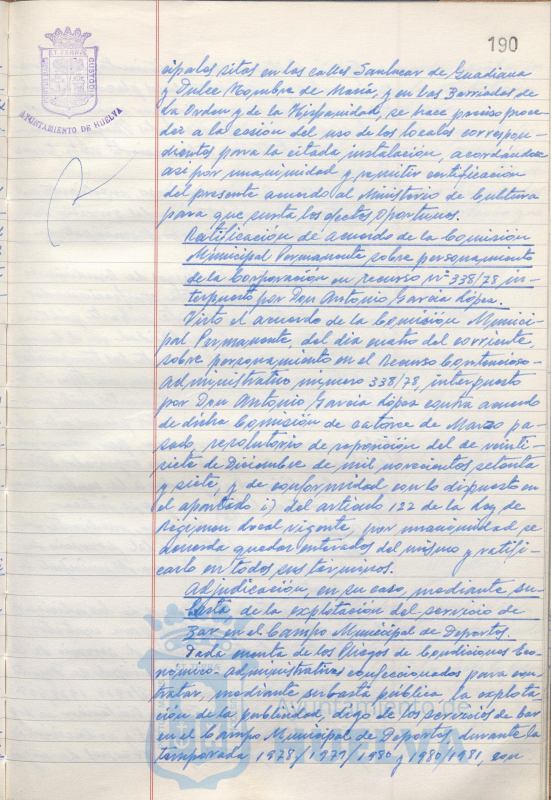 190
AYUNTAMIENTO DE HUELVA
cipales sitos en las calles Sanlucar de Guadiana
y Dulce Nombre de Maria, y en las Barriadas de
La Orden y de la Hispanidad, se hace preciso proce-
der a la cesion del uso de los locales correspon-
dientes para la citada instalación, acordándose
asi por unanimidad y remitir certificación
del presente acuerdo al Ministerio de Cultura
para que surta los efectos oportunos.
Ratificación de acuerdo de la Comisión
Municipal Permanente sobre personamiento
de la Corporación en recurso nº 338/78 in-
terpuesto por Don Antonio Garcia López.
Visto el acuerdo de la Comisión Munici-
pal Permanente, del dia cuatro del corriente,
sobre personamiento en el Recurso Contencioso-
administrativo número 338/78, interpuesto
por Don Antonio Garcia López contra acuerdo
de dicha Comisión de catorce de Marzo pa-
sado, resolutorio de reposición del de veinti-
siete de Diciembre de mil novecientos setenta
y siete, y de conformidad con lo dispuesto en
el apartado i) del articulo 122 de la Ley de
Régimen Local vigente, por unanimidad se
acuerda quedar enterados del mismo y ratifi-
carlo en todos sus términos.
Adjudicación, en su caso, mediante su-
basta de la explotación del servicio de
Bar en el Campo Municipal de Deportes.
Dada cuenta de los Pliegos de Condiciones Eco-
nómico-administrativas confeccionados para con-
tratar, mediante subasta pública, la explota-
ción de la publicidad, digo de los servicios de bar
en el Campo Municipal de Deportes, durante la
temporada 1978/1979/1980 y 1980/1981, con
Ayuntamiento de
HUELVA